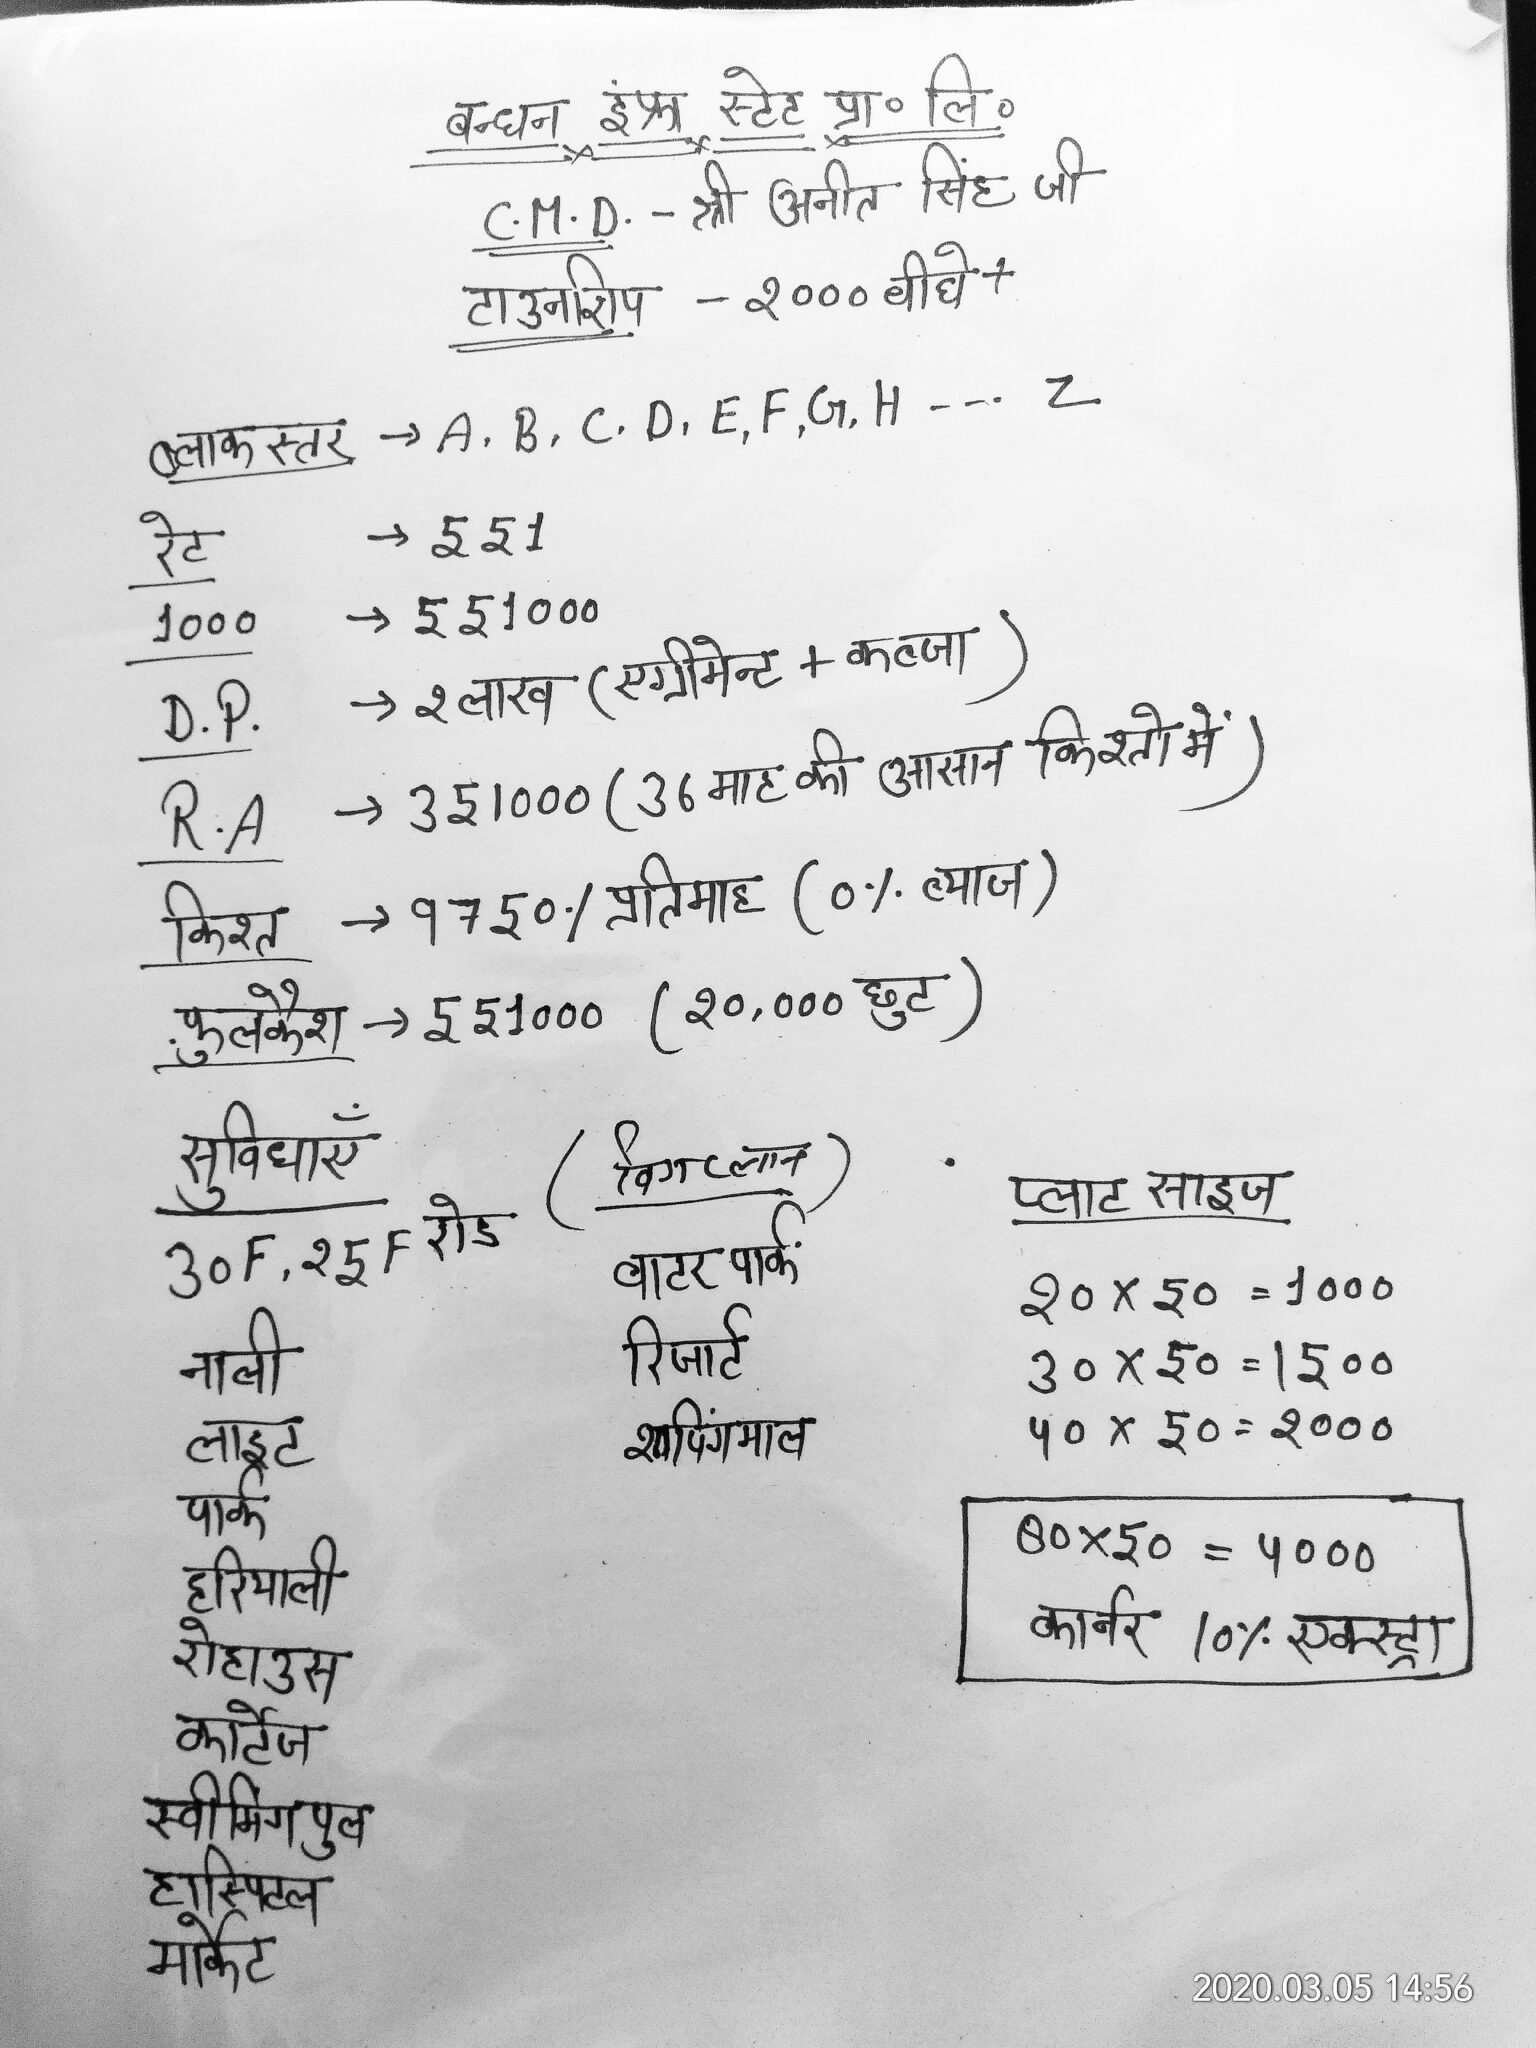 बन्धन इंफ्रा स्टेट प्रा० लि०
C.M.D. - श्री अनीत सिंह जी
टाउनशिप - 2000 बीघे +
ब्लाक स्तर → A, B, C, D, E, F, G, H --- Z
रेट → 551
1000 → 551000
D.P. → 2 लाख (एग्रीमेन्ट + कब्जा)
R.A → 351000 (36 माह की आसान किश्तो में)
किश्त → 9750/. प्रतिमाह (0% ब्याज)
फुलकैश → 551000 (20,000 छुट)
सुविधाएँ
30F, 25F रोड
नाली
लाइट
पार्क
हरियाली
रोहाउस
कार्टेज
स्वीमिंग पुल
हास्पिटल
मार्केट
(बिगप्लान)
वाटर पार्क
रिजार्ट
शापिंग माल
प्लाट साइज
20 x 50 = 1000
30 x 50 = 1500
40 x 50 = 2000
80x50 = 4000
कार्नर 10% एक्स्ट्रा
2020.03.05 14:56